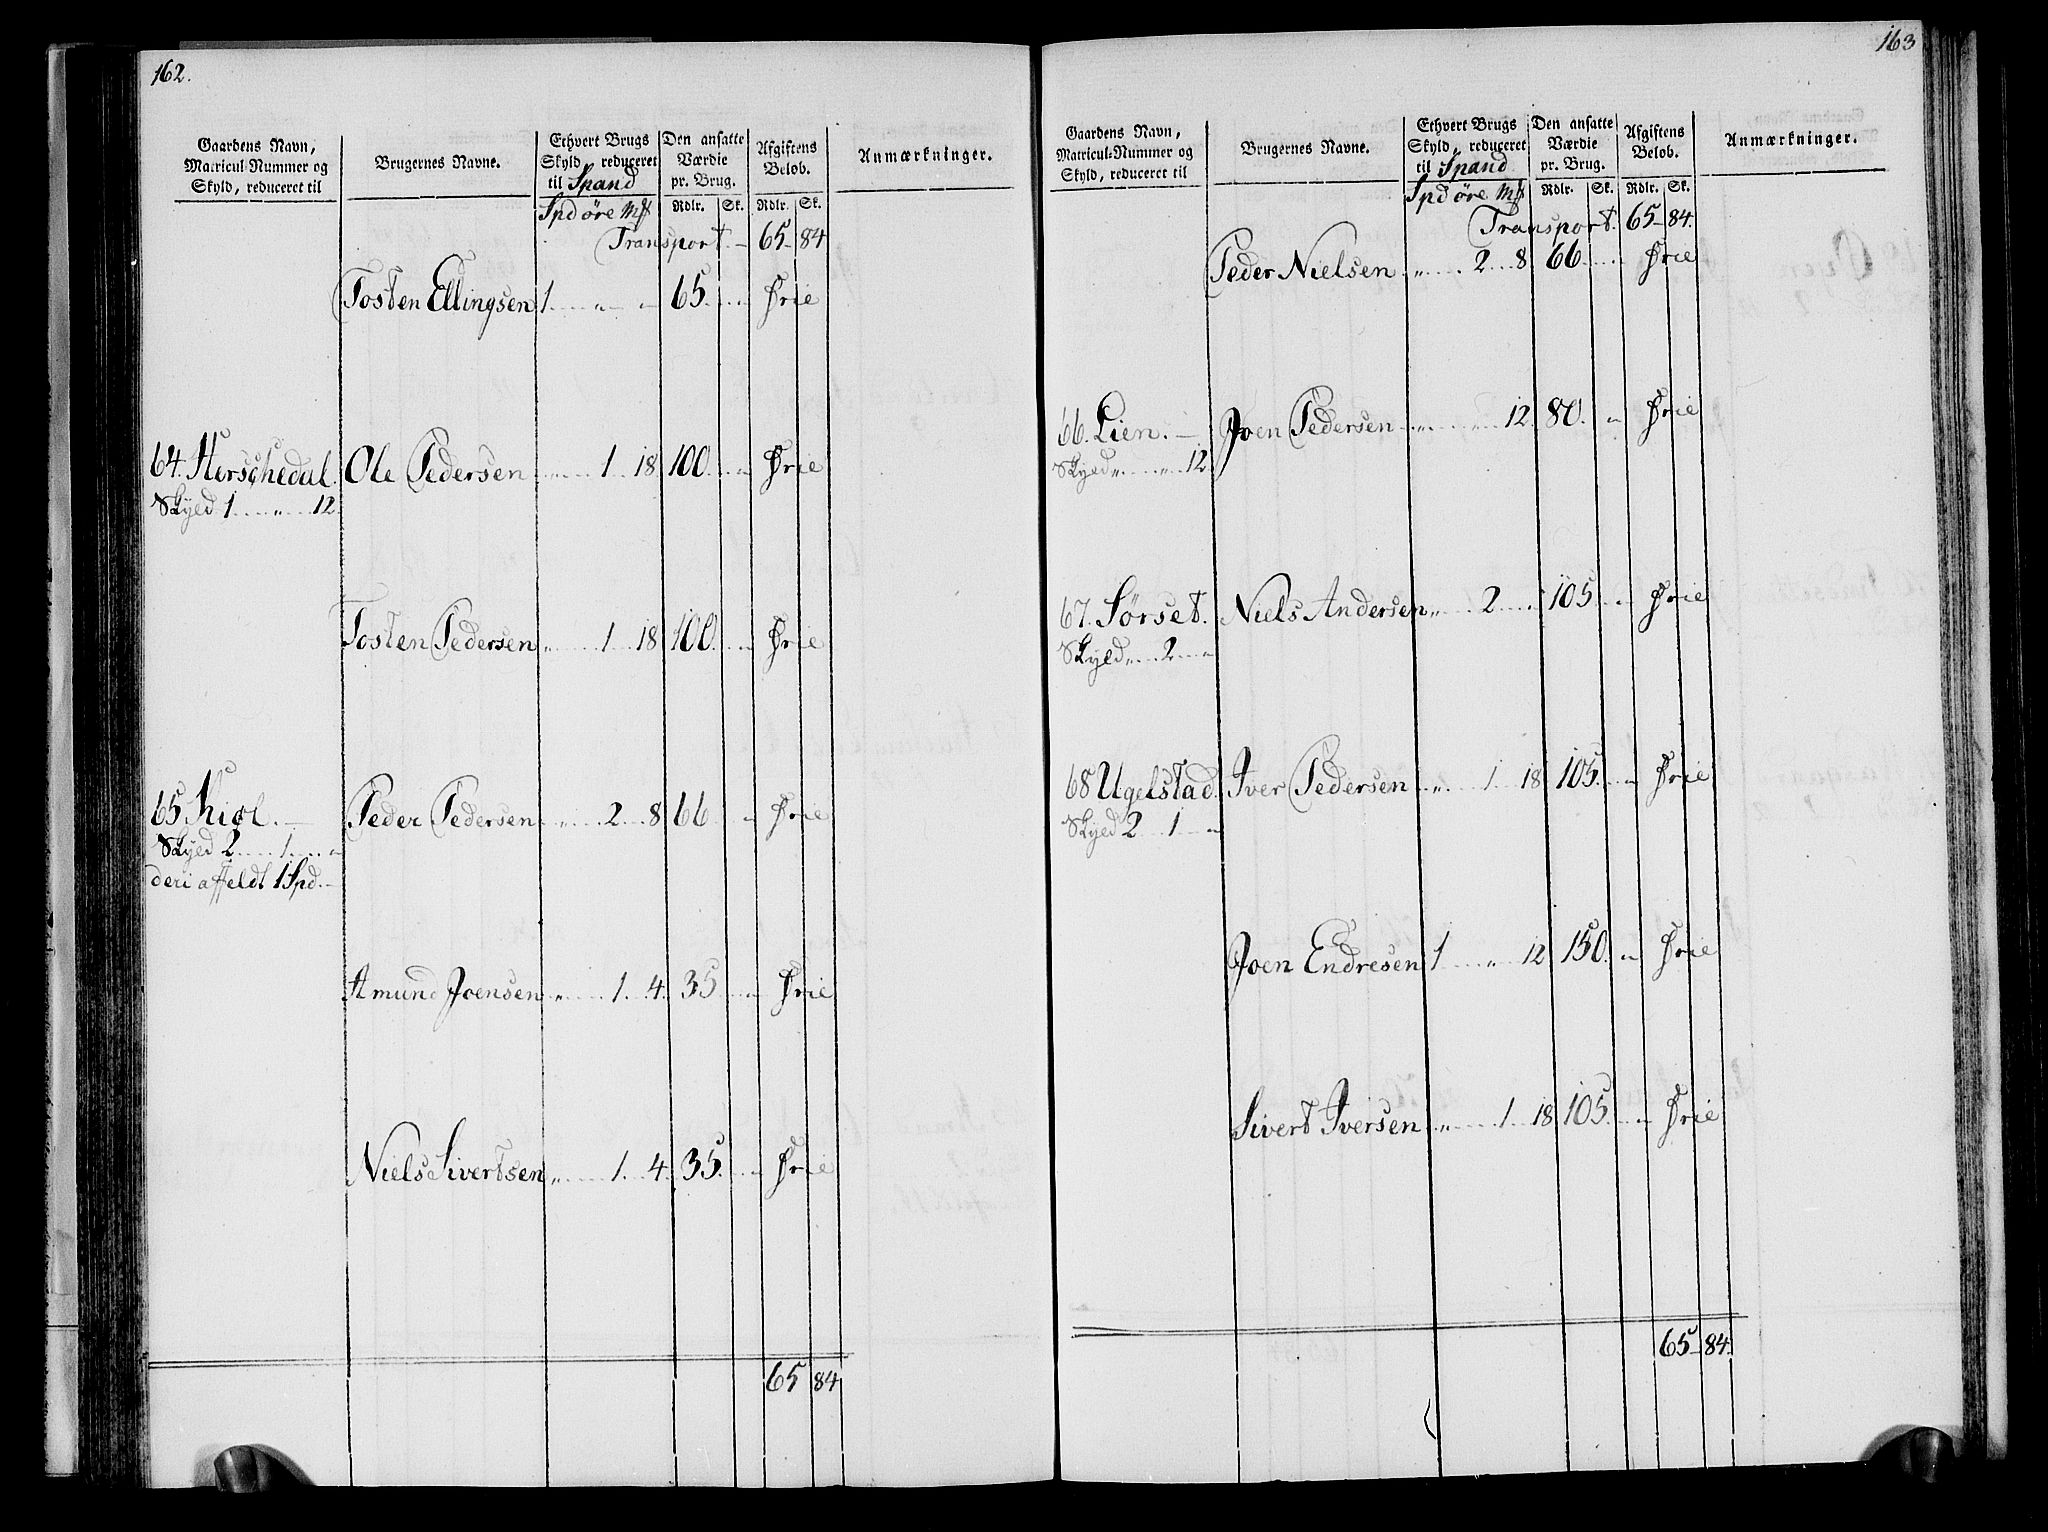 162.
Gaardens Navn, Matricul-Nummer og Skyld, reduceret til | Brugernes Navne. | Ethvert Brugs Skyld, reduceret til Spand | Den ansatte Værdie pr. Brug. | Afgiftens Beløb. | Anmærkninger.
Spd øre Mk | Rdlr. | Sk. | Rdlr. | Sk.
Transport. — 65 — 84
Tosten Ellingsen 1 „ „ 65. „ Frie
64. Herschedal. Ole Pedersen „ 1 18 100. „ Frie
Skyld 1 „ 12.
Tosten Pedersen „ 1 18 100. „ Frie
65 Kiøl. — Peder Pedersen „ 2 8 66 „ Frie
Skyld 2 1 „
deri affeldt 1 Spd. —
Amund Joensen „ 1 4. 35 „ Frie
Niels Sivertsen „ 1 4. 35. „ Frie
65 84
163
Gaardens Navn, Matricul-Nummer og Skyld, reduceret til | Brugernes Navne. | Ethvert Brugs Skyld, reduceret til Spand | Den ansatte Værdie pr. Brug. | Afgiftens Beløb. | Anmærkninger.
Spd øre Mk | Rdlr. | Sk. | Rdlr. | Sk.
Transport. 65 — 84.
Peder Nielsen „ 2 8 66 „ Frie
66. Lien. — Joen Pedersen „ „ 12 80. „ Frie
Skyld „ „ 12.
67. Sørset. Niels Andersen „ 2 „ 105 „ Frie
Skyld „ 2 „
68 Ugelstad. Iver Pedersen „ 1 18 105. „ Frie
Skyld 2 1 „
Joen Endresen 1 „ 12 150. „ Frie
Sivert Iversen „ 1 18 105 „ Frie
65 — 84.